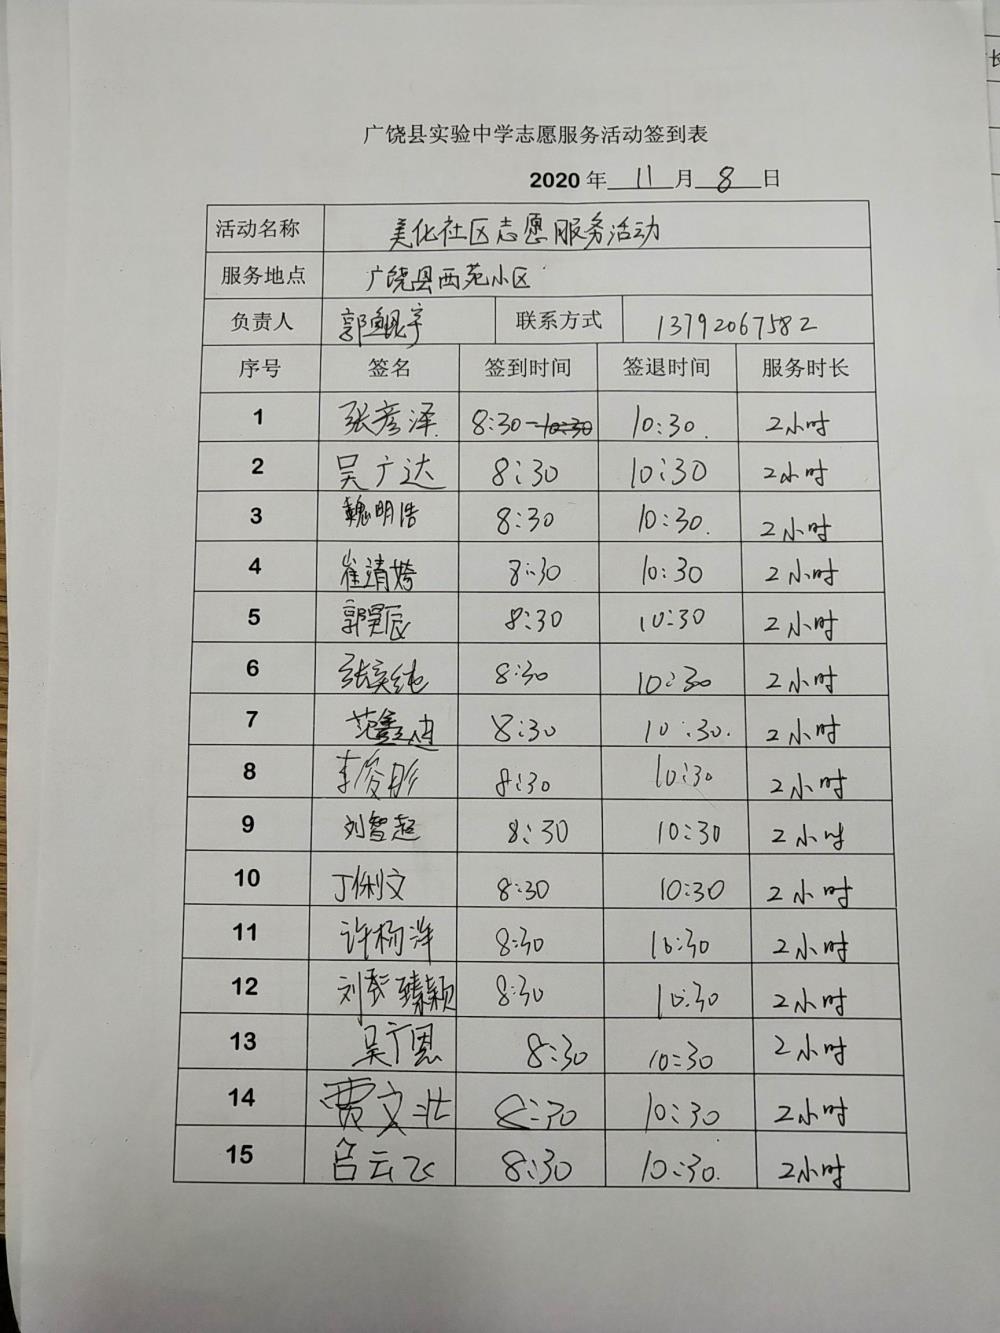 长
广饶县实验中学志愿服务活动签到表
2020 年 11 月 8 日
活动名称 美化社区志愿服务活动
服务地点 广饶县西苑小区
负责人 郭鲲宇 联系方式 13792067582
序号 签名 签到时间 签退时间 服务时长
1 张彦泽 8:30-10:30 10:30. 2小时
2 吴广达 8:30 10:30 2小时
3 魏明浩 8:30 10:30. 2小时
4 崔靖 8:30 10:30 2小时
5 郭昊辰 8:30 10:30 2小时
6 张奕纯 8:30 10:30 2小时
7 范鑫迪 8:30 10:30. 2小时
8 李俊彤 8:30 10:30 2小时
9 刘智超 8:30 10:30 2小时
10 丁俐文 8:30 10:30 2小时
11 许杨洋 8:30 10:30 2小时
12 刘张臻颖 8:30 10:30 2小时
13 吴广恩 8:30 10:30 2小时
14 贾文壮 8:30 10:30 2小时
15 吕云飞 8:30 10:30. 2小时